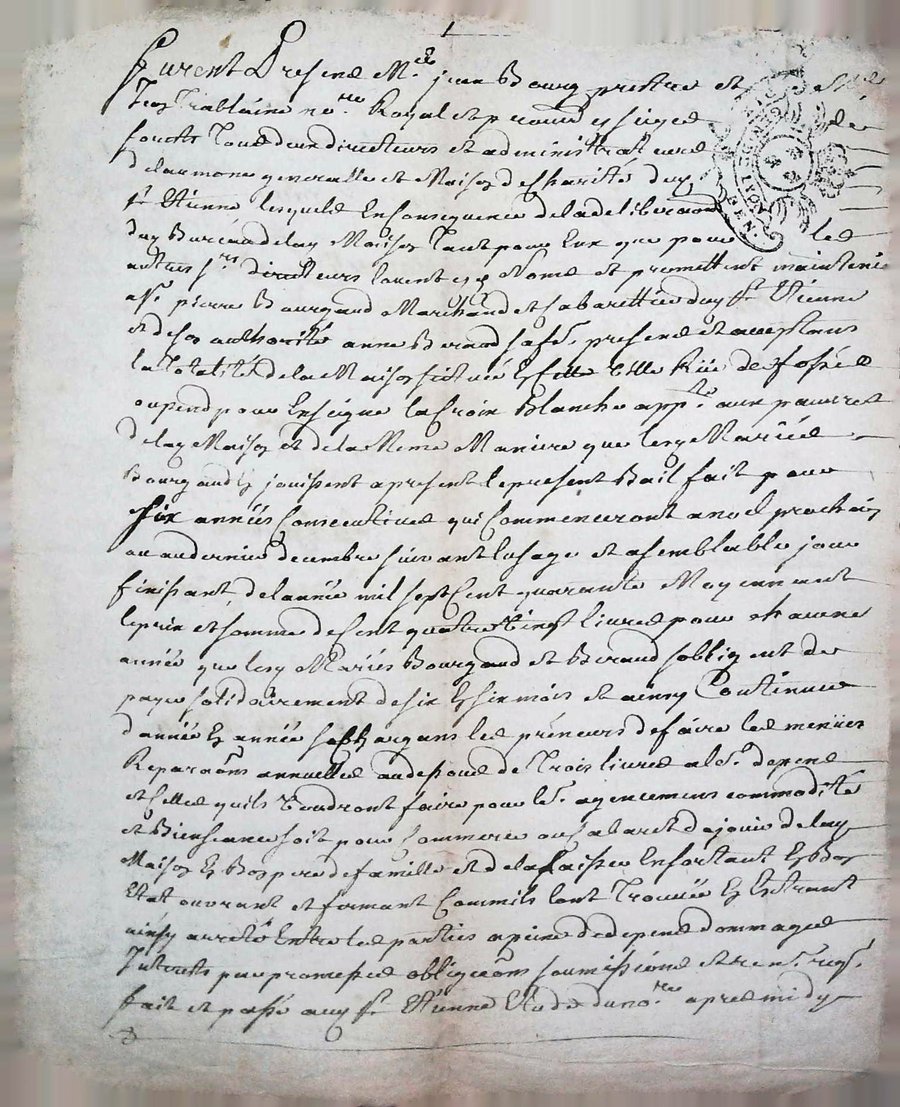 furent Presens Mre jean Bourg prestre et
nore Royal et procureur es sieges
touts deux directeurs et administrateurs
de laumone generalle et Maison de Charité dud
st Etienne lesquels En Consequence de la deliberaon
du Bureau de lad Maison Tant pour Eux que pour les
autres srs directeurs louent esd Noms et promettent maintenir
a sr pierre Bourgaud Marchand et Cabarettier dud st Etienne
et de son authorité anne Beraud sa fe presens et acceptans
la Totalité de la Maison scituée En Cette Ville Rüe de fossés
ou pend pour Enseigne la Croix Blanche appte aux pauvres
de lad Maison et de la Meme Maniere que lesd Mariés
Bourgaud En jouissent a present le present Bail fait pour
six années Consecutives qui Commenceront a noel prochain
ou au dernier decembre suivant lusage et a semblable jour
finissant de lannée mil sept Cent quarante Moyennant
le prix et somme de Cent quatre Vingt livres pour chacune
année que lesd Mariés Bourgaud et Beraud sobligent de
payer solidairement de six En six mois et ainsy Continuer
dannée En année se Chargeans les preneurs de faire les menües
Reparaons annuelles au dessous de Trois livres a leurs depens
et Celles quils Voudront faire pour leurs agencemens commodité
et Bienseance soit pour Commerce ou Cabaret de jouir de lad
Maison En Bon pere de famille et de la laisser En sortant En Bon
Etat ouvrant et fermant Comme ils lont Trouvée En Entrant
ainsy arreté Entre les parties a peine de depens dommages
Interets par promesses obligaons soumissions et renons
fait et passé aud st Etienne Etude du nore apres midy